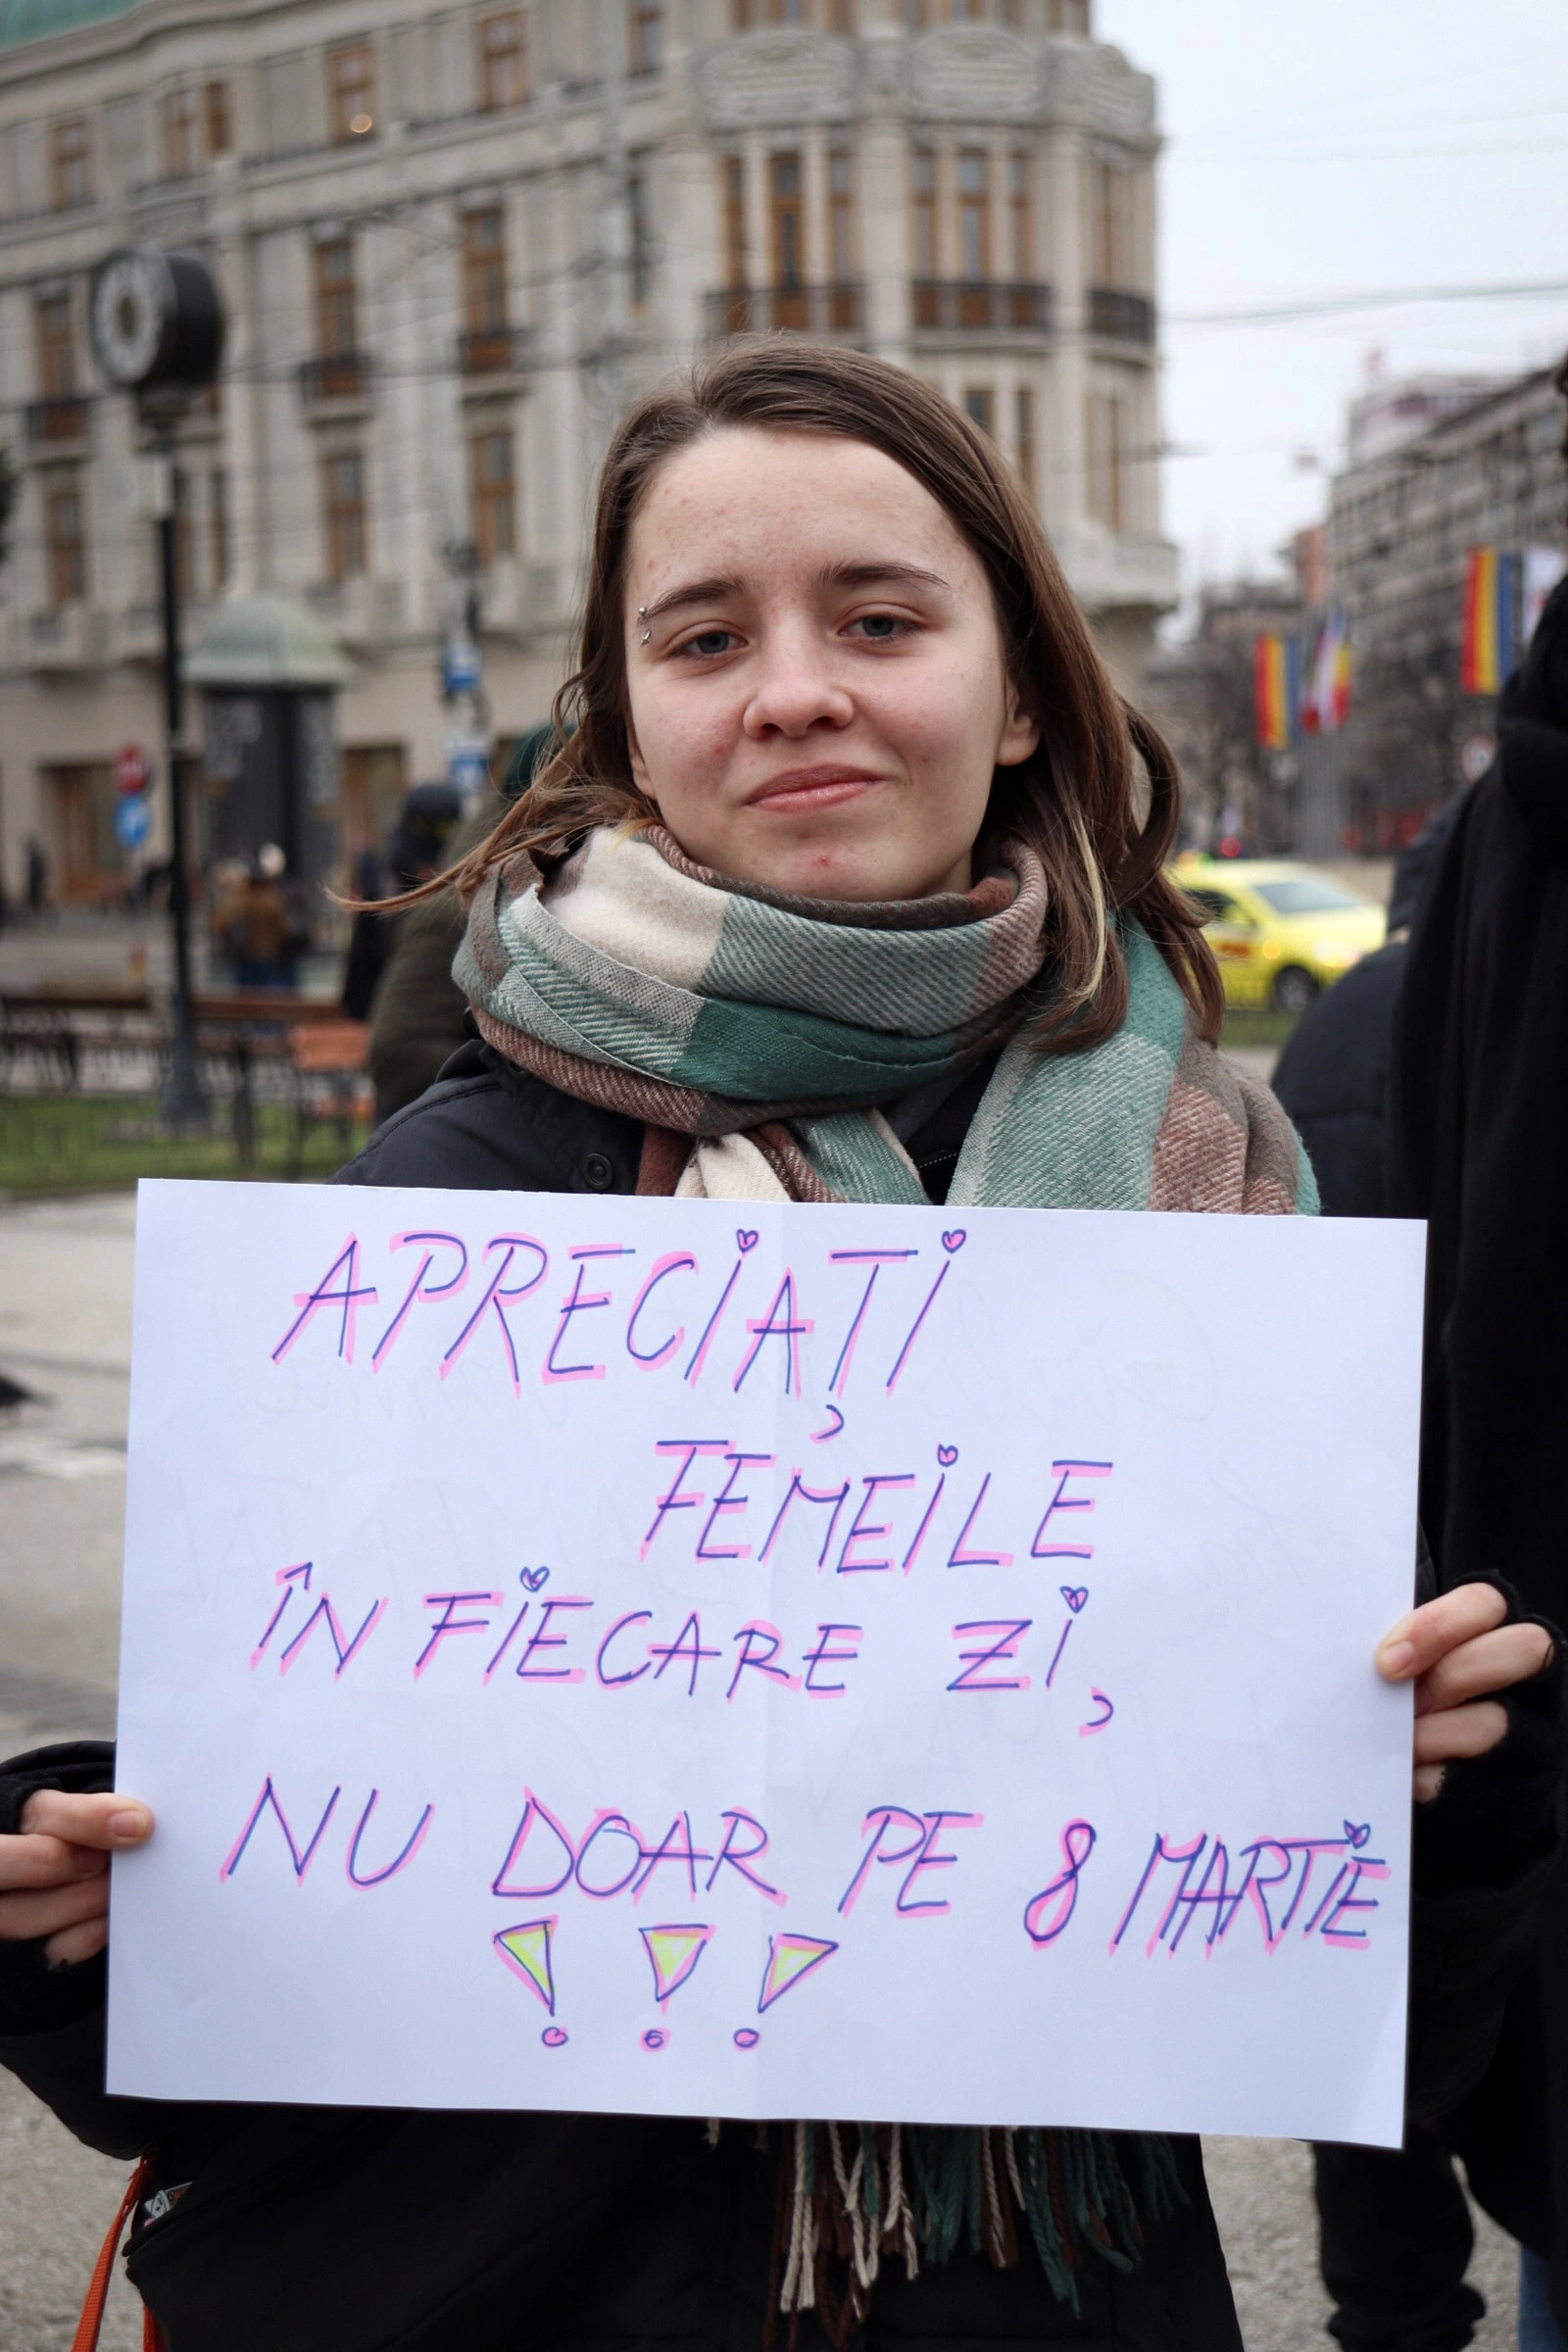 APRECIAȚI
FEMEILE
ÎN FIECARE ZI,
NU DOAR PE 8 MARTIE
!!!